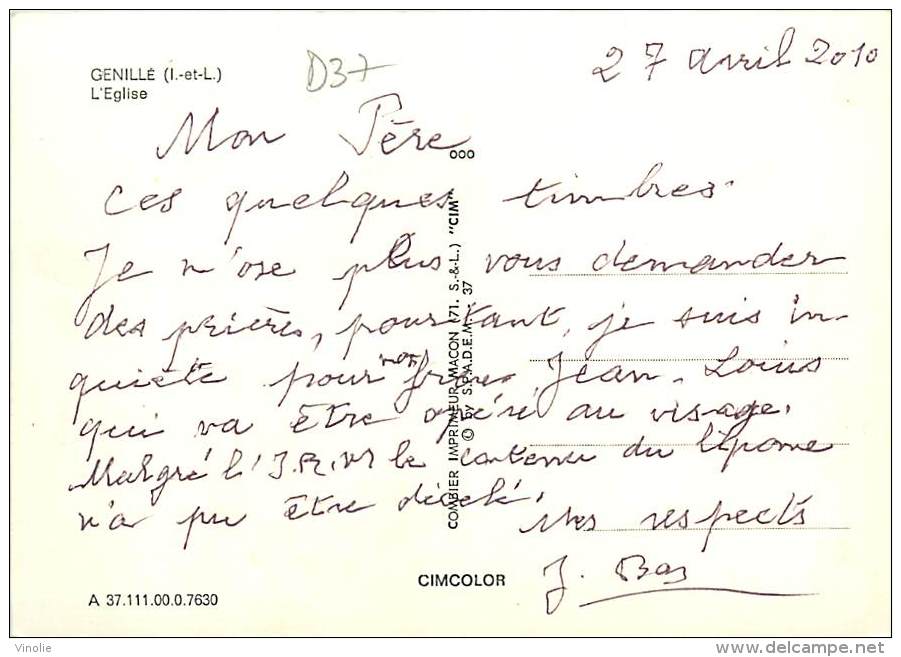 GENILLÉ (I.-et-L.)
L'Eglise
D37
27 avril 2010
Mon Père
ces quelques timbres.
Je n'ose plus vous demander
des prières, pourtant, je suis in-
quiète pour mon frère Jean-Louis
qui va être opéré au visage.
Malgré l'I.R.M le contenu du lipome
n'a pu être décelé.
Mes respects
J. Bas
COMBIER IMPRIMEUR MACON (71. S.-&-L.) "CIM"
© by S.P.A.D.E.M. 37
ooo
CIMCOLOR
A 37.111.00.0.7630
Vinolie
www.delcampe.net